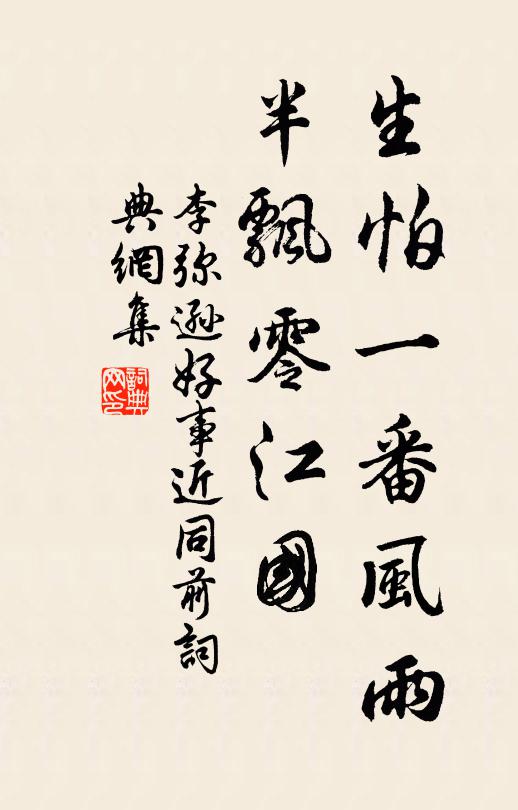 生怕一番風雨
半飄零江國
李弥遜好事近同前詞
典網集
詞典
网印